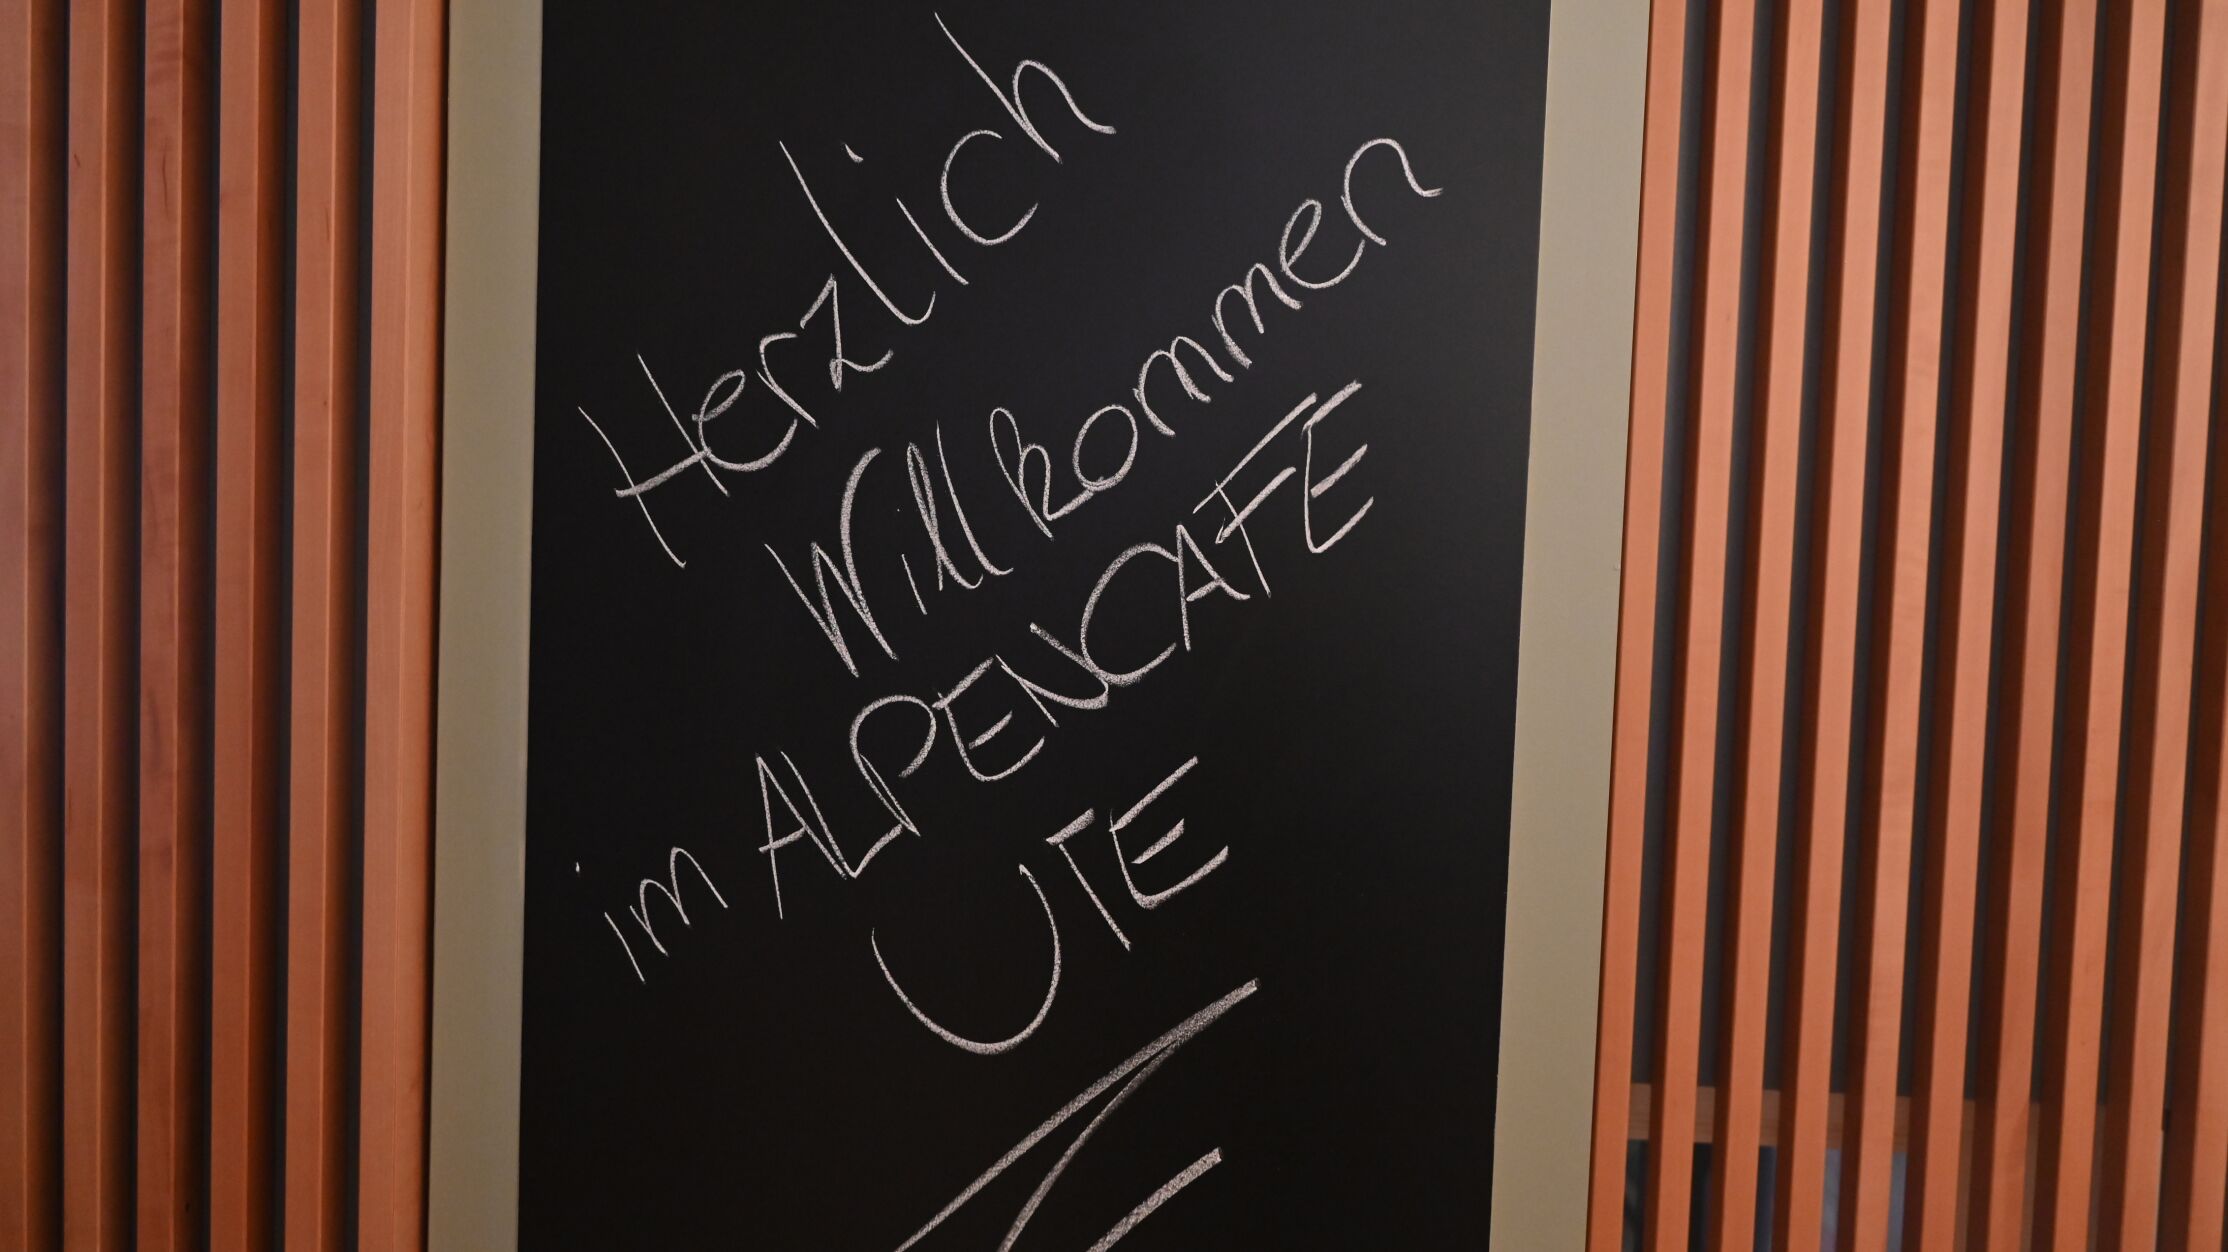 Herzlich
Willkommen
im ALPENCAFE
UTE